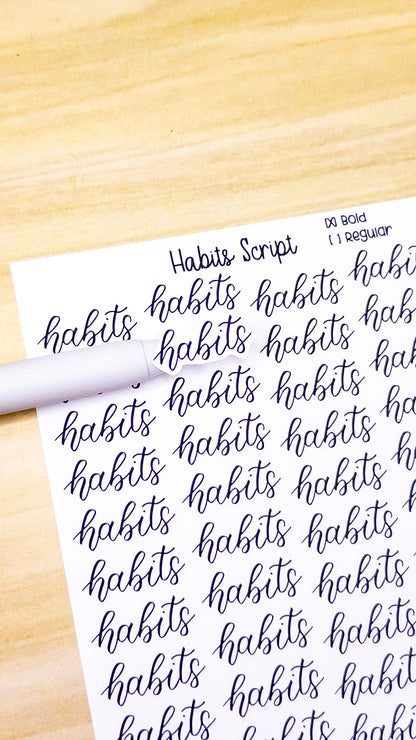 Habits Script
[x] Bold
[ ] Regular
habits habits habits habi
habits habits hab
habits habits habits ha
habits habits habits ha
habits habits habits h
habits habits habits
habits habits habits
habits habits habits
habits habits habits
habits habits